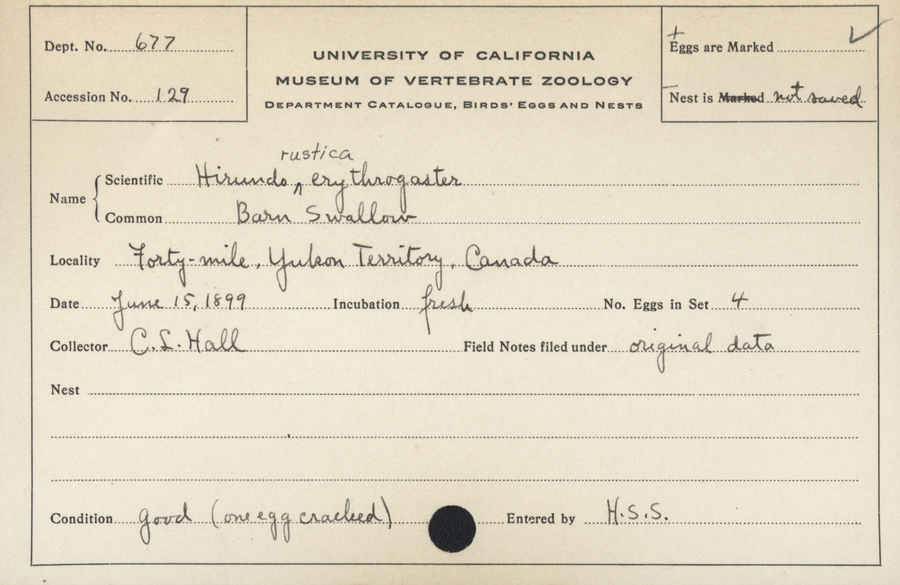 Dept. No. 677
Accession No. 129
UNIVERSITY OF CALIFORNIA
MUSEUM OF VERTEBRATE ZOOLOGY
DEPARTMENT CATALOGUE, BIRDS' EGGS AND NESTS
+
Eggs are Marked ✓
Nest is Marked not saved
rustica
Name { Scientific Hirundo ^ erythrogaster
Common Barn Swallow
Locality Forty-mile, Yukon Territory, Canada
Date June 15, 1899 Incubation fresh No. Eggs in Set 4
Collector C.L. Hall Field Notes filed under original data
Nest
Condition good (one egg cracked) Entered by H.S.S.